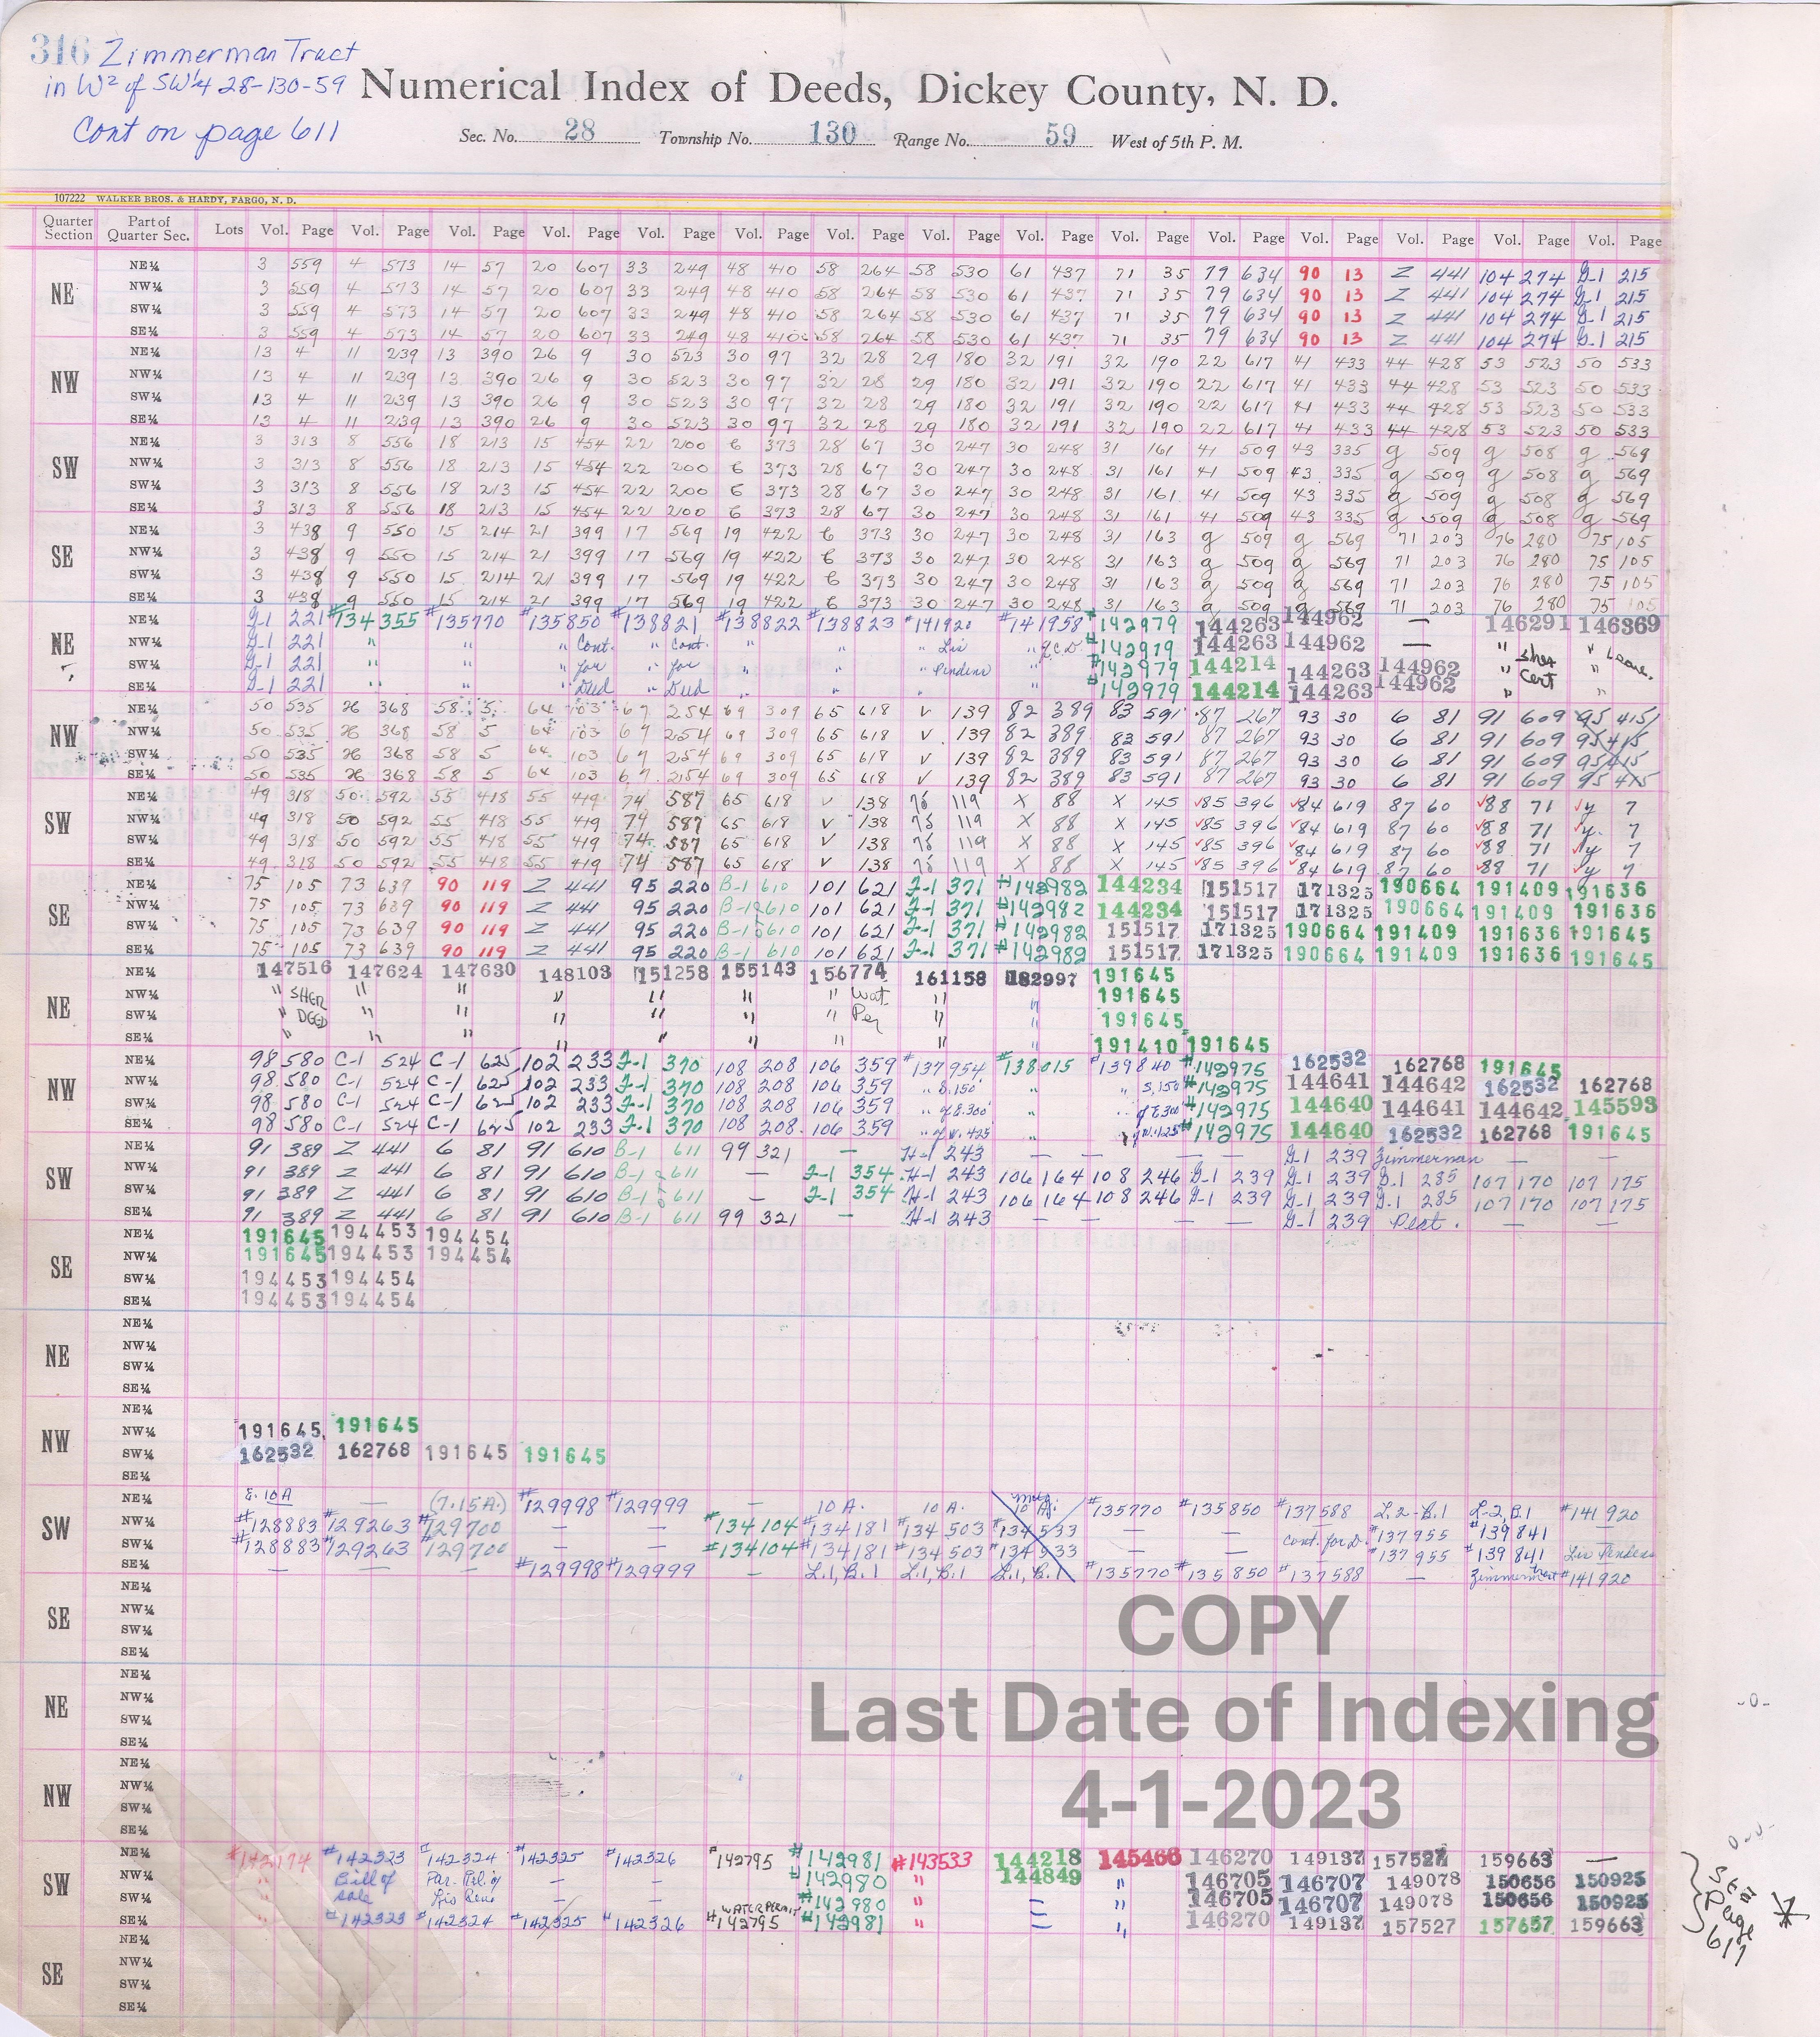 316 Zimmerman Tract
in W² of SW¼ 28-130-59
Cont on page 611
Numerical Index of Deeds, Dickey County, N. D.
Sec. No. 28 Township No. 130 Range No. 59 West of 5th P. M.
107222 WALKER BROS. & HARDY, FARGO, N. D.
Quarter Section Part of Quarter Sec. Lots Vol. Page Vol. Page Vol. Page Vol. Page Vol. Page Vol. Page Vol. Page Vol. Page Vol. Page Vol. Page Vol. Page Vol. Page Vol. Page Vol. Page Vol. Page
NE
NE¼ 3 559 4 573 14 57 20 607 33 249 48 410 58 264 58 530 61 437 71 35 79 634 90 13 Z 441 104 274 G-1 215
NW¼ 3 559 4 573 14 57 20 607 33 249 48 410 58 264 58 530 61 437 71 35 79 634 90 13 Z 441 104 274 G-1 215
SW¼ 3 559 4 573 14 57 20 607 33 249 48 410 58 264 58 530 61 437 71 35 79 634 90 13 Z 441 104 274 G-1 215
SE¼ 3 559 4 573 14 57 20 607 33 249 48 410 58 264 58 530 61 437 71 35 79 634 90 13 Z 441 104 274 G-1 215
NW
NE¼ 13 4 11 239 13 390 26 9 30 523 30 97 32 28 29 180 32 191 32 190 22 617 41 433 44 428 53 523 50 533
NW¼ 13 4 11 239 13 390 26 9 30 523 30 97 32 28 29 180 32 191 32 190 22 617 41 433 44 428 53 523 50 533
SW¼ 13 4 11 239 13 390 26 9 30 523 30 97 32 28 29 180 32 191 32 190 22 617 41 433 44 428 53 523 50 533
SE¼ 13 4 11 239 13 390 26 9 30 523 30 97 32 28 29 180 32 191 32 190 22 617 41 433 44 428 53 523 50 533
SW
NE¼ 3 313 8 556 18 213 15 454 22 200 6 373 28 67 30 247 30 248 31 161 41 509 43 335 g 509 g 508 g 569
NW¼ 3 313 8 556 18 213 15 454 22 200 6 373 28 67 30 247 30 248 31 161 41 509 43 335 g 509 g 508 g 569
SW¼ 3 313 8 556 18 213 15 454 22 200 6 373 28 67 30 247 30 248 31 161 41 509 43 335 g 509 g 508 g 569
SE¼ 3 313 8 556 18 213 15 454 22 200 6 373 28 67 30 247 30 248 31 161 41 509 43 335 g 509 g 508 g 569
SE
NE¼ 3 438 9 550 15 214 21 399 17 569 19 422 6 373 30 247 30 248 31 163 g 509 g 569 71 203 76 280 75 105
NW¼ 3 438 9 550 15 214 21 399 17 569 19 422 6 373 30 247 30 248 31 163 g 509 g 569 71 203 76 280 75 105
SW¼ 3 438 9 550 15 214 21 399 17 569 19 422 6 373 30 247 30 248 31 163 g 509 g 569 71 203 76 280 75 105
SE¼ 3 438 9 550 15 214 21 399 17 569 19 422 6 373 30 247 30 248 31 163 g 509 g 569 71 203 76 280 75 105
NE
NE¼ G-1 221 #134355 #135770 #135850 #138821 #138822 #138823 #141920 #141958 #142979 144263 144962 — 146291 146369
NW¼ G-1 221 " " " Cont. " Cont. " " " Lis " Q.C.D. #142979 144263 144962 — " Sher " Leave.
SW¼ G-1 221 " " " for " for " " " Pendens " #142979 144214 144263 144962 " Cert "
SE¼ G-1 221 " " " Deed " Deed " " " " #142979 144214 144263 144962 " "
NW
NE¼ 50 535 H 368 58 5 64 103 67 254 69 309 65 618 V 139 82 389 83 591 87 267 93 30 6 81 91 609 95 415
NW¼ 50 535 H 368 58 5 64 103 67 254 69 309 65 618 V 139 82 389 83 591 87 267 93 30 6 81 91 609 95 415
SW¼ 50 535 H 368 58 5 64 103 67 254 69 309 65 618 V 139 82 389 83 591 87 267 93 30 6 81 91 609 95 415
SE¼ 50 535 H 368 58 5 64 103 67 254 69 309 65 618 V 139 82 389 83 591 87 267 93 30 6 81 91 609 95 415
SW
NE¼ 49 318 50 592 55 418 55 419 74 587 65 618 V 138 76 119 X 88 X 145 ✓85 396 ✓84 619 87 60 ✓88 71 ✓y 7
NW¼ 49 318 50 592 55 418 55 419 74 587 65 618 V 138 76 119 X 88 X 145 ✓85 396 ✓84 619 87 60 ✓88 71 ✓y 7
SW¼ 49 318 50 592 55 418 55 419 74 587 65 618 V 138 76 119 X 88 X 145 ✓85 396 ✓84 619 87 60 ✓88 71 ✓y 7
SE¼ 49 318 50 592 55 418 55 419 74 587 65 618 V 138 76 119 X 88 X 145 ✓85 396 ✓84 619 87 60 ✓88 71 ✓y 7
SE
NE¼ 75 105 73 639 90 119 Z 441 95 220 B-1 610 101 621 F-1 371 #142982 144234 151517 171325 190664 191409 191636
NW¼ 75 105 73 639 90 119 Z 441 95 220 B-1 610 101 621 F-1 371 #142982 144234 151517 171325 190664 191409 191636
SW¼ 75 105 73 639 90 119 Z 441 95 220 B-1 610 101 621 F-1 371 #142982 151517 171325 190664 191409 191636 191645
SE¼ 75 105 73 639 90 119 Z 441 95 220 B-1 610 101 621 F-1 371 #142982 151517 171325 190664 191409 191636 191645
NE
NE¼ 147516 147624 147630 148103 151258 155143 156774 161158 162997 191645
NW¼ " SHER " " " " " " Wat. " " 191645
SW¼ " DEED " " " " " " Per " " 191645
SE¼ " " " " " " " " " 191410 191645
NW
NE¼ 98 580 C-1 524 C-1 625 102 233 F-1 370 108 208 106 359 #137954 #138015 #139840 #142975 162532 162768 191645
NW¼ 98 580 C-1 524 C-1 625 102 233 F-1 370 108 208 106 359 " S.150' " " S.150' #142975 144641 144642 162532 162768
SW¼ 98 580 C-1 524 C-1 625 102 233 F-1 370 108 208 106 359 " of E.300' " " of E.300' #142975 144640 144641 144642 145593
SE¼ 98 580 C-1 524 C-1 625 102 233 F-1 370 108 208 106 359 " of W.425 " " of W.125' #142975 144640 162532 162768 191645
SW
NE¼ 91 389 Z 441 6 81 91 610 B-1 611 99 321 — H-1 243 — — — G-1 239 Zimmerman — —
NW¼ 91 389 Z 441 6 81 91 610 B-1 611 — F-1 354 H-1 243 106 164 108 246 G-1 239 G-1 239 G-1 285 107 170 107 175
SW¼ 91 389 Z 441 6 81 91 610 B-1 611 — F-1 354 H-1 243 106 164 108 246 G-1 239 G-1 239 G-1 285 107 170 107 175
SE¼ 91 389 Z 441 6 81 91 610 B-1 611 99 321 — H-1 243 — — — G-1 239 — —
SE
NE¼ 191645 194453 194454
NW¼ 191645 194453 194454
SW¼ 194453 194454
SE¼ 194453 194454
NE
NE¼
NW¼
SW¼
SE¼
NW
NE¼
NW¼ 191645 191645
SW¼ 162532 162768 191645 191645
SE¼
SW
NE¼ E. 10 A — (7.15 A.) #129998 #129999 — 10 A. 10 A. 10 A. #135770 #135850 #137588 L.2-B.1 L-2, B.1 #141920
NW¼ #128883 #129263 #129700 — — #134104 #134181 #134503 #134533 — — — #137955 #139841 —
SW¼ #128883 #129263 #129700 — — #134104 #134181 #134503 #134533 — — Cont. for D. #137955 #139841 Lis Pendens
SE¼ — — — #129998 #129999 — L.1, B.1 L.1, B.1 L.1, B.1 #135770 #135850 #137588 — Zimmerman tract #141920
SE
NE¼
NW¼
SW¼
SE¼
COPY
NE
NE¼
NW¼
SW¼
SE¼
Last Date of Indexing
NW
NE¼
NW¼
SW¼
SE¼
4-1-2023
SW
NE¼ #142323 #142324 #142325 #142326 #142795 #142981 #143533 144218 145466 146270 149137 157527 159663 —
NW¼ Bill of Par. Rel. of — — #142980 " 144849 " 146705 146707 149078 150656 150925
SW¼ sale Lis — — WATER PERMIT #142980 " — " 146705 146707 149078 150656 150925
SE¼ #142323 #142324 #142325 #142326 #142795 #142981 " — " 146270 149137 157527 157657 159663
SE
NE¼
NW¼
SW¼
SE¼
Page